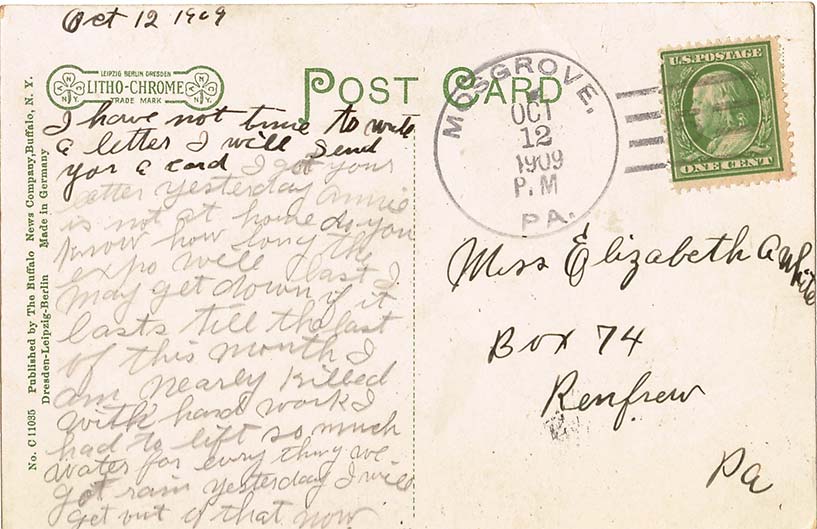 Oct 12 1909
LEIPZIG BERLIN DRESDEN
LITHO-CHROME
TRADE MARK
N Y N Y
N Y N Y
POST CARD
I have not time to write
a letter I will Send
yor a card I got your
letter yesterday annie
is not at home do you
know how long the
expo will last I
may get down if it
lasts till the last
of this month I
am nearly Killed
with hard work I
had to lift so much
water for every thing we
got rain yesterday I will
get out of that now
No. C 11035 Published by The Buffalo News Company, Buffalo, N. Y.
Dresden-Leipzig-Berlin Made in Germany
MOSGROVE,
OCT
12
1909
P.M
PA.
U.S. POSTAGE
ONE CENT
Miss Elizabeth A White
Box 74
Renfrew
Pa